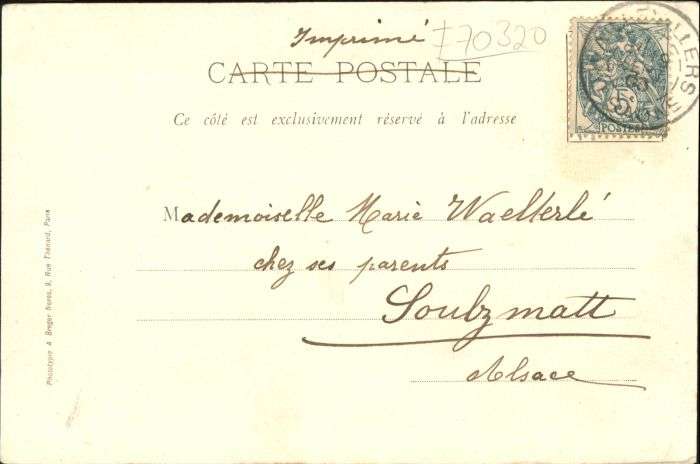 Imprimé
I70320
CARTE POSTALE
Ce côté est exclusivement réservé à l'adresse
5c
POSTES
Mademoiselle Marie Waelterlé
chez ses parents
Soultzmatt
Alsace
Phototypie A Breger frères, 9, Rue Thénard, Paris